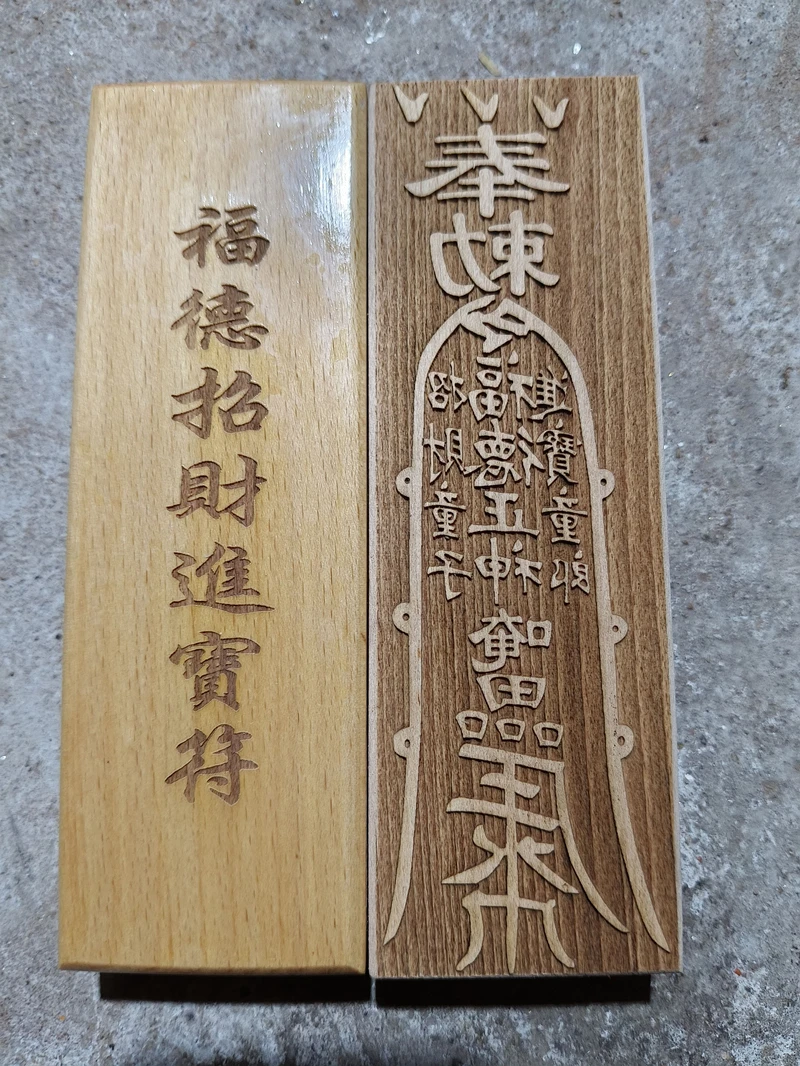 福德招財進寶符
奉
勅
令
進寶童郎
福德正神
招財童子
唵